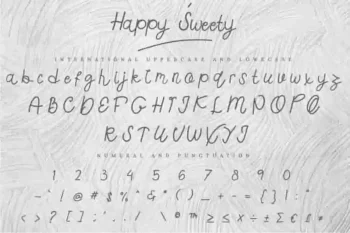 Happy Sweety
INTERNATIONAL UPPERCASE AND LOWECASE
abcdefghijklmnopqrstuvwxyz
ABCDEFGHIJKLMNOPQ
RSTUVWXYZ
NUMERAL AND PUNCTUATION
1 2 3 4 5 6 7 8 9 0
! @ # $ % ^ & * ( ) _ + - = { } | :
< > ? [ ] ; ' . / \ © ™ ≥ ≤ × ÷ ± Σ € £